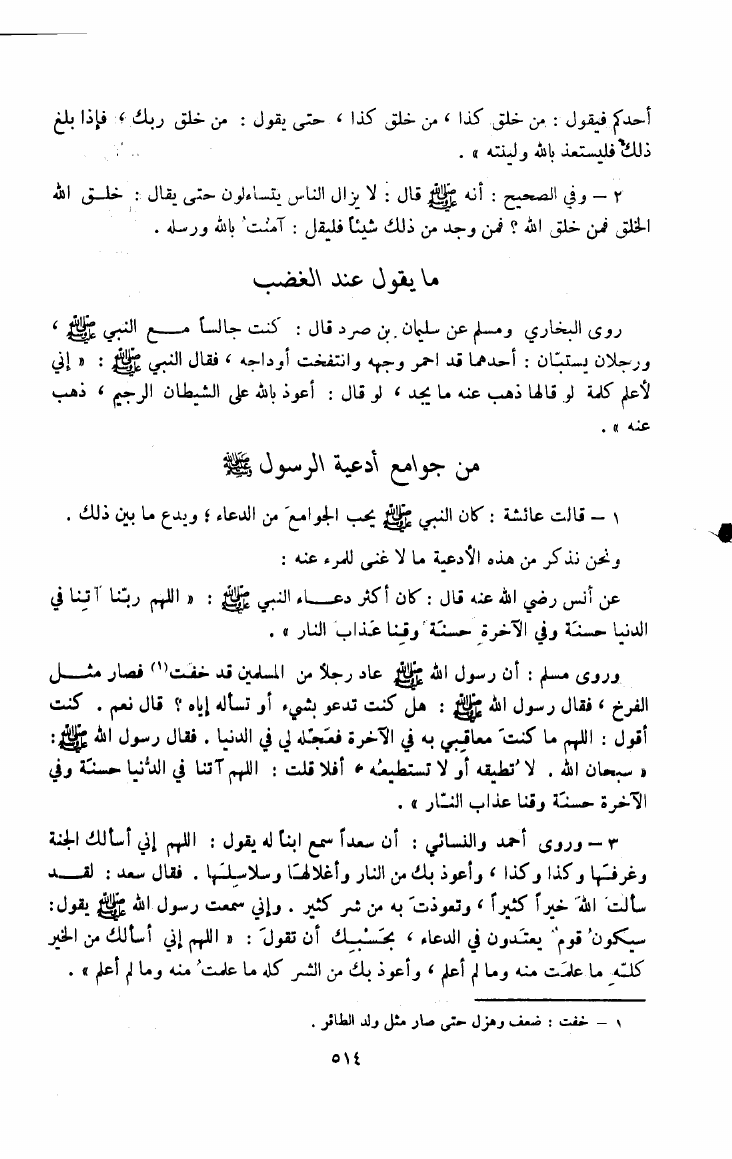 أحدكم فيقول : من خلق كذا ، من خلق كذا ، حتى يقول : من خلق ربك ، فإذا بلغ
ذلك فليستعذ بالله ولينته » .
٢ – وفي الصحيح : أنه ﷺ قال : لا يزال الناس يتساءلون حتى يقال : خلق الله
الخلق فمن خلق الله ؟ فمن وجد من ذلك شيئاً فليقل : آمنتُ بالله ورسله .
ما يقول عند الغضب
روى البخاري ومسلم عن سليمان بن صرد قال : كنت جالساً مع النبي ﷺ ،
ورجلان يستبّان : أحدهما قد احمر وجهه وانتفخت أوداجه ، فقال النبي ﷺ : « إني
لأعلم كلمة لو قالها ذهب عنه ما يجد ، لو قال : أعوذ بالله على الشيطان الرجيم ، ذهب
عنه » .
من جوامع أدعية الرسول ﷺ
١ – قالت عائشة : كان النبي ﷺ يحب الجوامعَ من الدعاء ؛ ويدع ما بين ذلك .
ونحن نذكر من هذه الأدعية ما لا غنى للمرء عنه :
عن أنس رضي الله عنه قال : كان أكثر دعاء النبي ﷺ : « اللهم ربّنا آتِنا في
الدنيا حسنَة وفي الآخرةِ حسنَة وقِنا عَذابَ النار » .
وروى مسلم : أن رسول الله ﷺ عاد رجلاً من المسلمين قد خفَت(١) فصار مثل
الفرخ ، فقال رسول الله ﷺ : هل كنت تدعو بشيء أو تسأله إياه ؟ قال نعم . كنت
أقول : اللهم ما كنتَ معاقِبي به في الآخرة فعَجّله لي في الدنيا . فقال رسول الله ﷺ :
« سبحان الله . لا تُطيقه أو لا تستطيعُه ، أفلا قلت : اللهم آتنا في الدُّنيا حسنَة وفي
الآخرة حسنَة وقنا عذاب النّار » .
٣ – وروى أحمد والنسائي : أن سعداً سمع ابناً له يقول : اللهم إني أسألك الجنة
وغرفَها وكذا وكذا ، وأعوذ بك من النار وأغلالها وسلاسِلها . فقال سعد : لقد
سألتَ اللهَ خيراً كثيراً ، وتعوذتَ به من شر كثير . وإني سمعت رسول الله ﷺ يقول :
سيكونُ قومٌ يعتَدون في الدعاء ، بحَسْبِك أن تقولَ : « اللهم إني أسألك من الخير
كلّه ما علمَت منه وما لم أعلم ، وأعوذ بك من الشر كله ما علمتُ منه وما لم أعلم » .
١ – خفت : ضعف وهزل حتى صار مثل ولد الطائر .
٥١٤